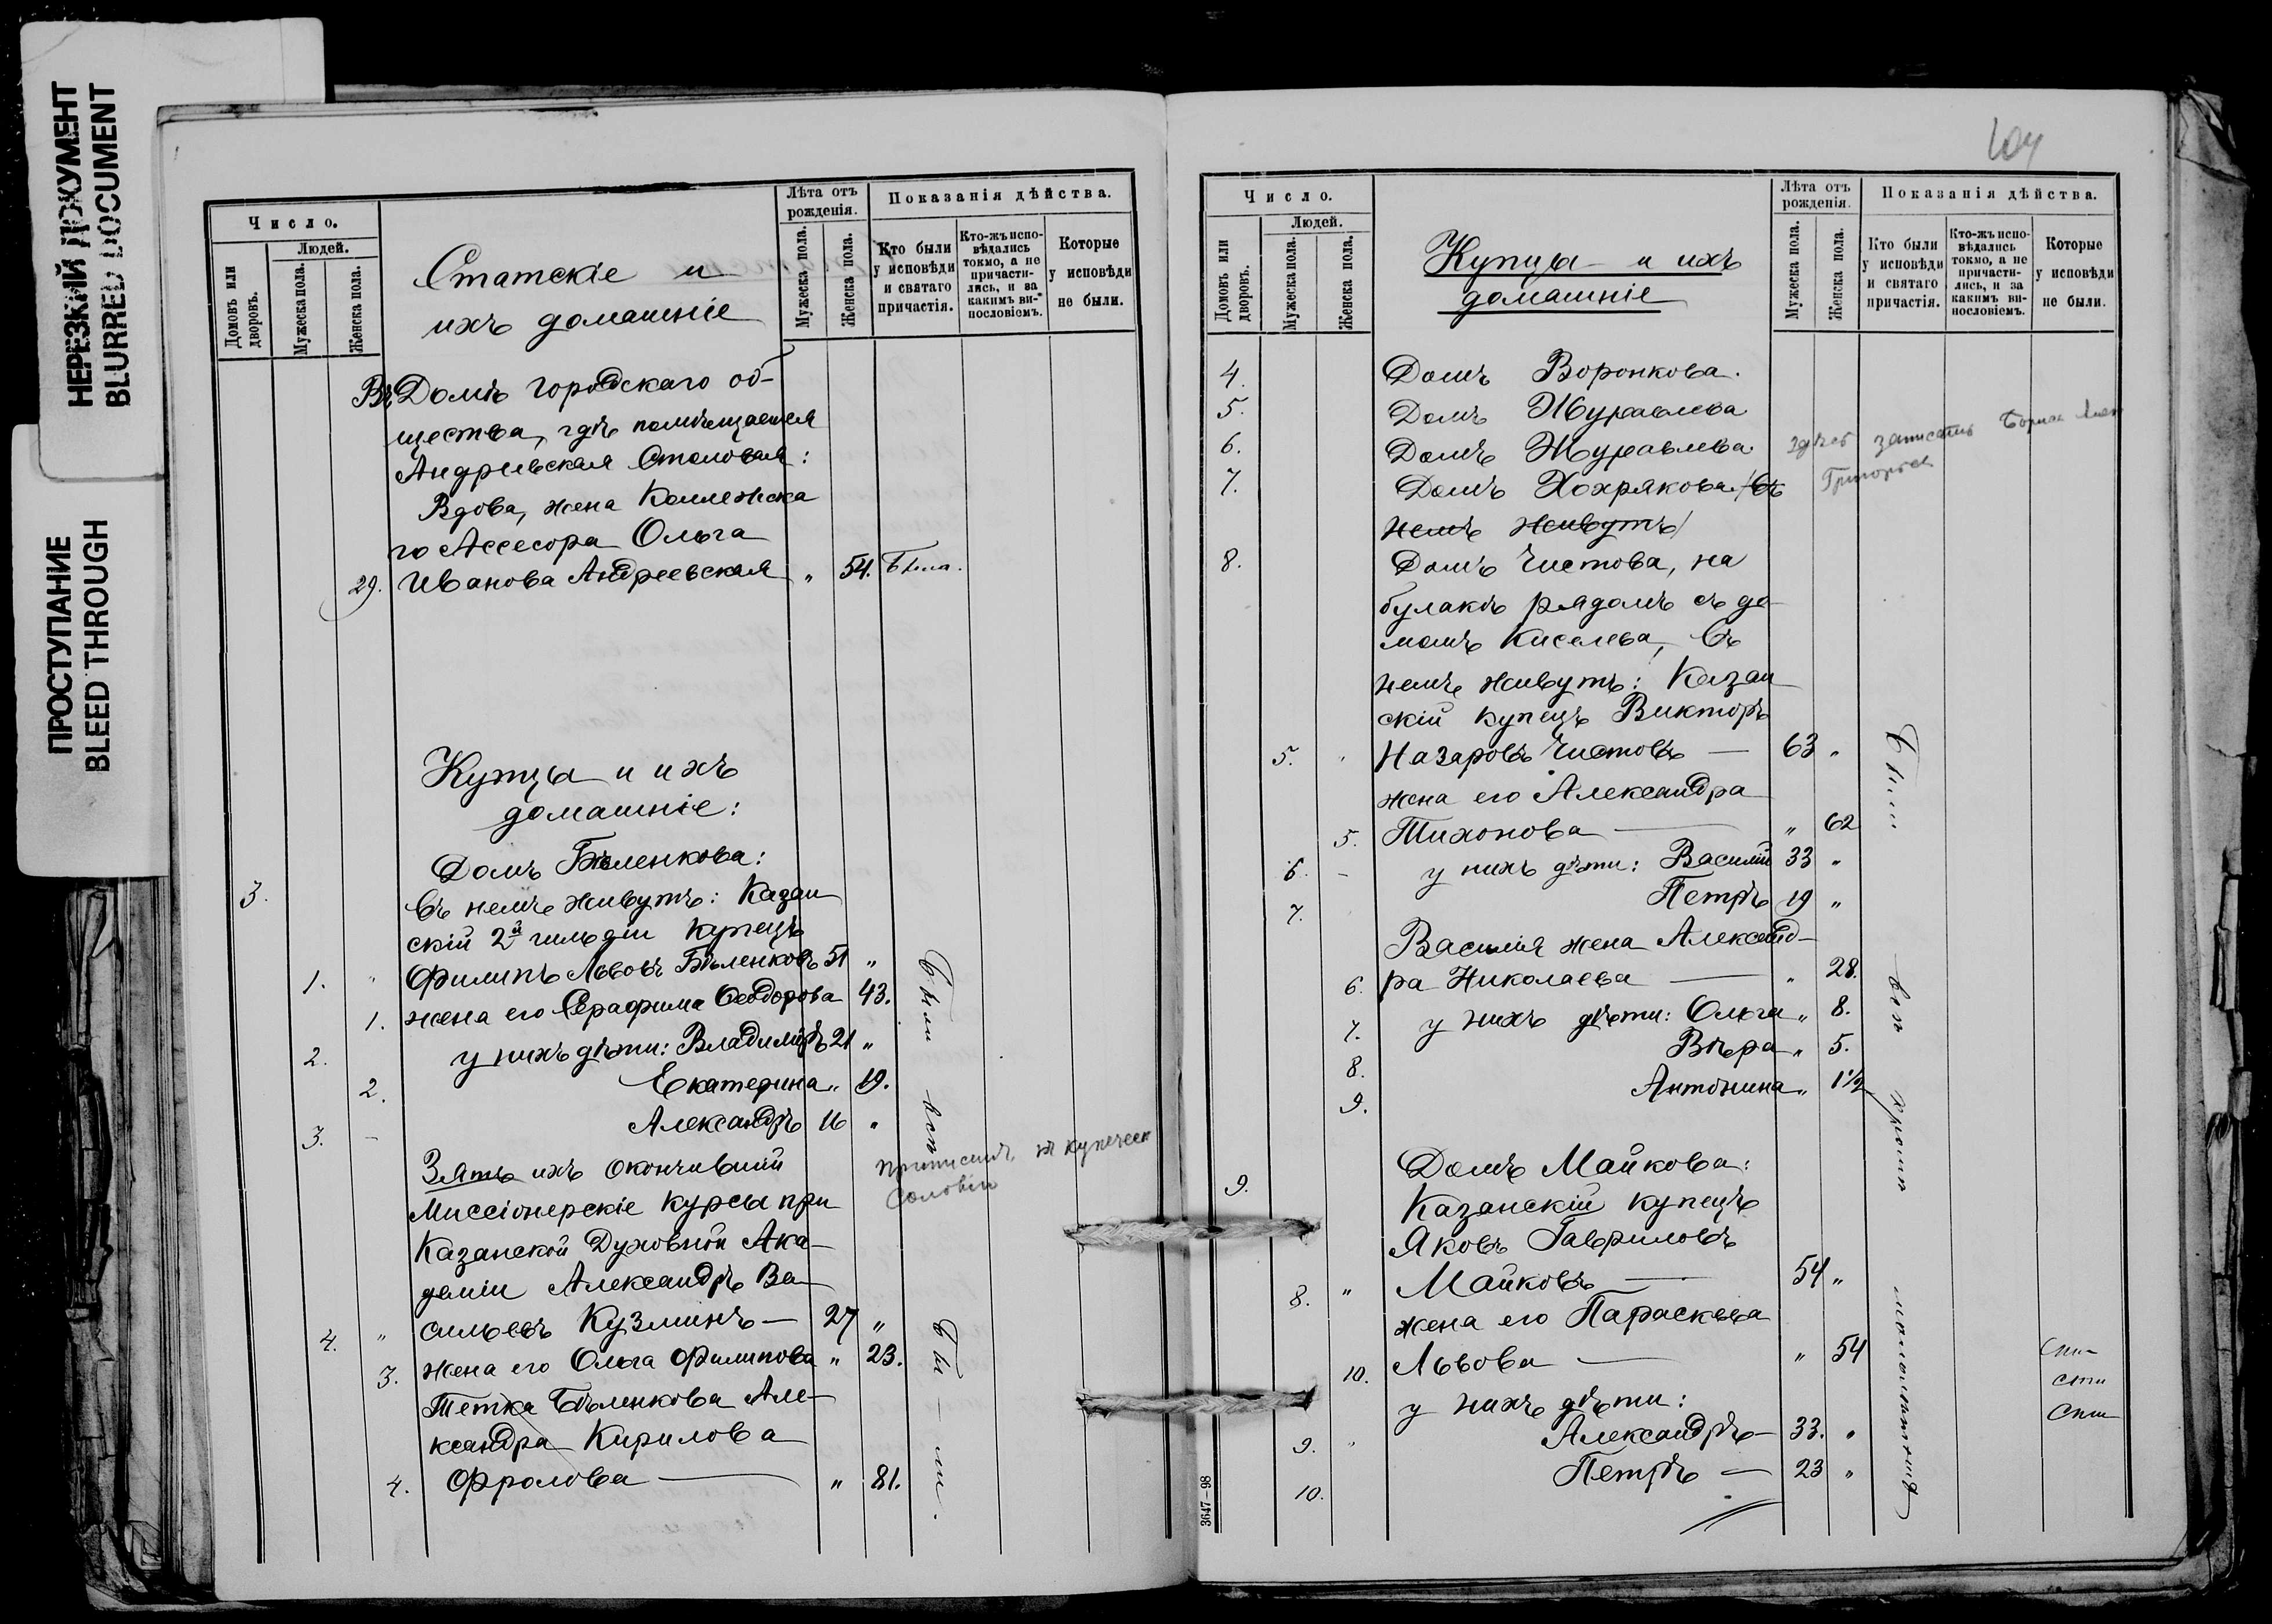 НЕРЕЗКИЙ ДОКУМЕНТ
BLURRED DOCUMENT
ПРОСТУПАНИЕ
BLEED THROUGH
Число.
Людей.
Домовъ или дворовъ.
Мужеска пола.
Женска пола.
Статскіе и
ихъ домашніе
Лѣта отъ рожденія.
Мужеска пола.
Женска пола.
Показанія дѣйства.
Кто были у исповѣди и святаго причастія.
Кто-жъ испо-вѣдались токмо, а не причасти-лись, и за какимъ ви-нословіемъ.
Которые у исповѣди не были.
Въ Домѣ городскаго об-
щества, гдѣ помѣщается
Андреевская Столовая:
Вдова, жена Коллежска
го Ассесора Ольга
29. Иванова Андреевская " 54. Была.
Купцы и ихъ
домашніе:
Домъ Бѣленкова:
3. Въ немъ живутъ: Казан
скій 2й гильдіи купецъ
1. " Филипъ Львовъ Бѣленковъ 51 "
1. жена его Серафима Ѳеодорова 43.
2. у нихъ дѣти: Владиміръ 21 "
2. Екатерина " 19.
3. - Александръ 16 "
Были всѣ
Зять ихъ окончившій
Миссіонерскіе курсы при
Казанской Духовной Ака-
деміи Александръ Ва
4. " сильевъ Кузминъ — 27 "
3. жена его Ольга Филипова " 23.
Тетка Бѣленкова Але-
ксандра Кирилова
4. Фролова — " 81.
купеческ
Бы - ли.
104
Число.
Людей.
Домовъ или дворовъ.
Мужеска пола.
Женска пола.
Купцы и ихъ
домашніе
Лѣта отъ рожденія.
Мужеска пола.
Женска пола.
Показанія дѣйства.
Кто были у исповѣди и святаго причастія.
Кто-жъ испо-вѣдались токмо, а не причасти-лись, и за какимъ ви-нословіемъ.
Которые у исповѣди не были.
4. Домъ Воронкова.
5. Домъ Журавлева
6. Домъ Журавлева. здѣсь записать
7. Домъ Хохрякова /въ Григорьев
немъ живутъ/
8. Домъ Чистова, на
булакѣ рядомъ съ до
момъ Киселева, Въ
немъ живутъ: Казан
скій купецъ Викторъ
5. " Назаровъ Чистовъ — 63 "
жена его Александра
5. Тихонова — " 62
6. - у нихъ дѣти: Василій 33 "
7. Петръ 19 "
Василія жена Александ-
6. ра Николаева — " 28.
7. у нихъ дѣти: Ольга " 8.
8. Вѣра " 5.
9. Антонина " 1½
Домъ Майкова:
9. Казанскій купецъ
Яковъ Гавриловъ
8. " Майковъ — 54 "
жена его Параскева
10. Львова — " 54
у нихъ дѣти:
9. " Александръ — 33. "
10. Петръ — 23 "
Были всѣ кромѣ малолѣтнихъ
3647—98